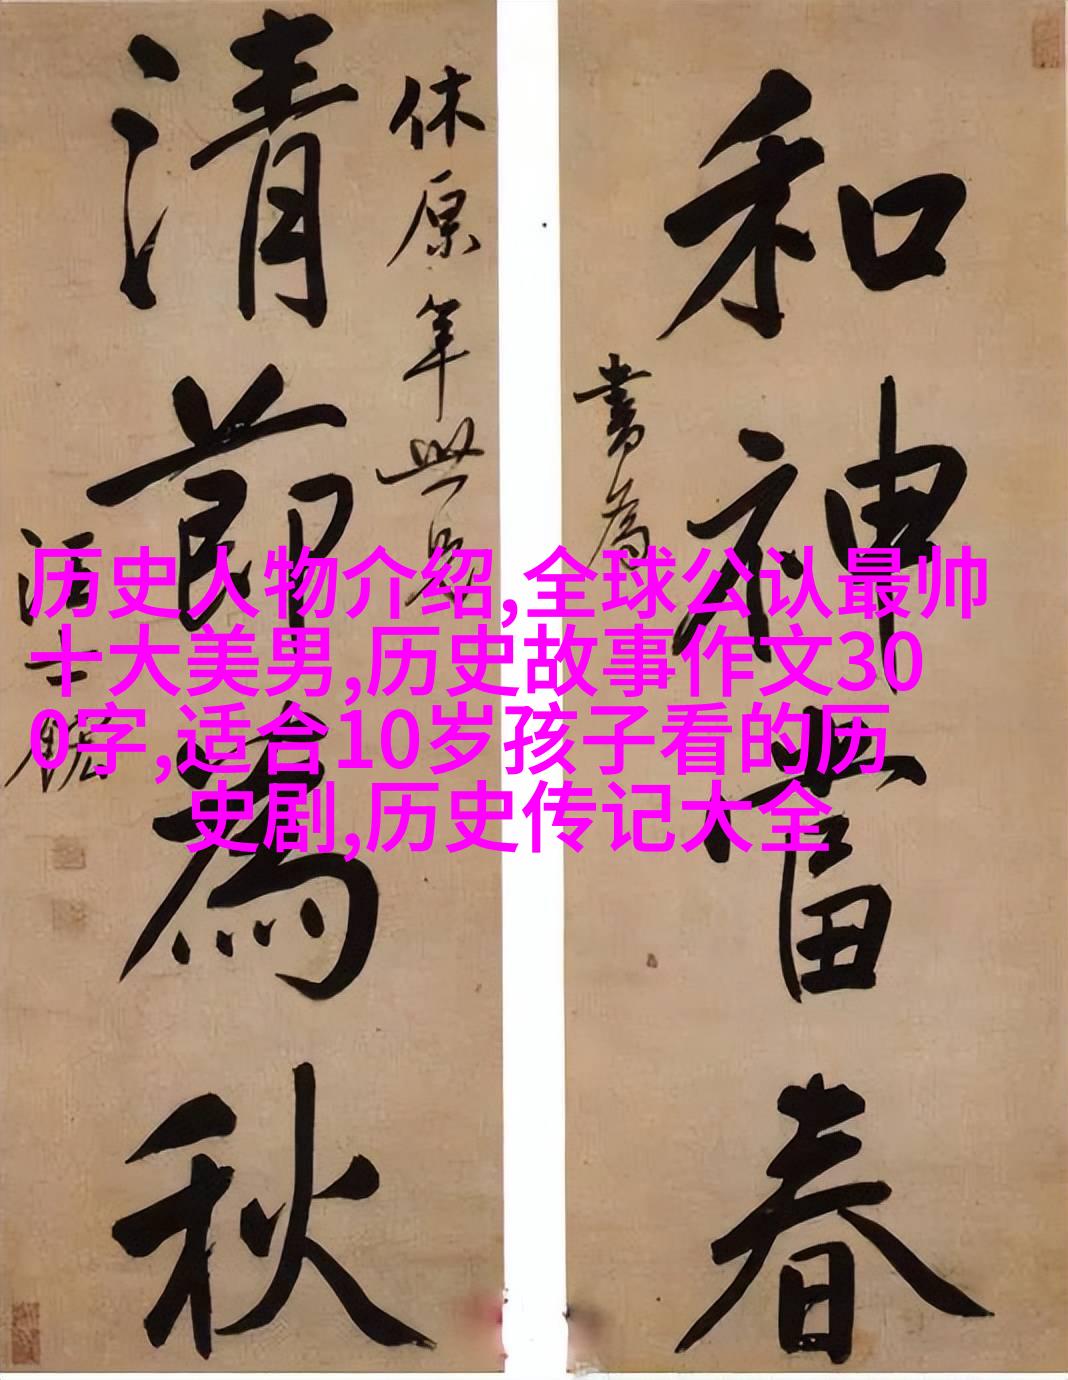 和神當春
書為
休原年世兄
清節為秋
汪士鋐
历史人物介绍,全球公认最帅
十大美男,历史故事作文30
0字,适合10岁孩子看的历
史剧,历史传记大全